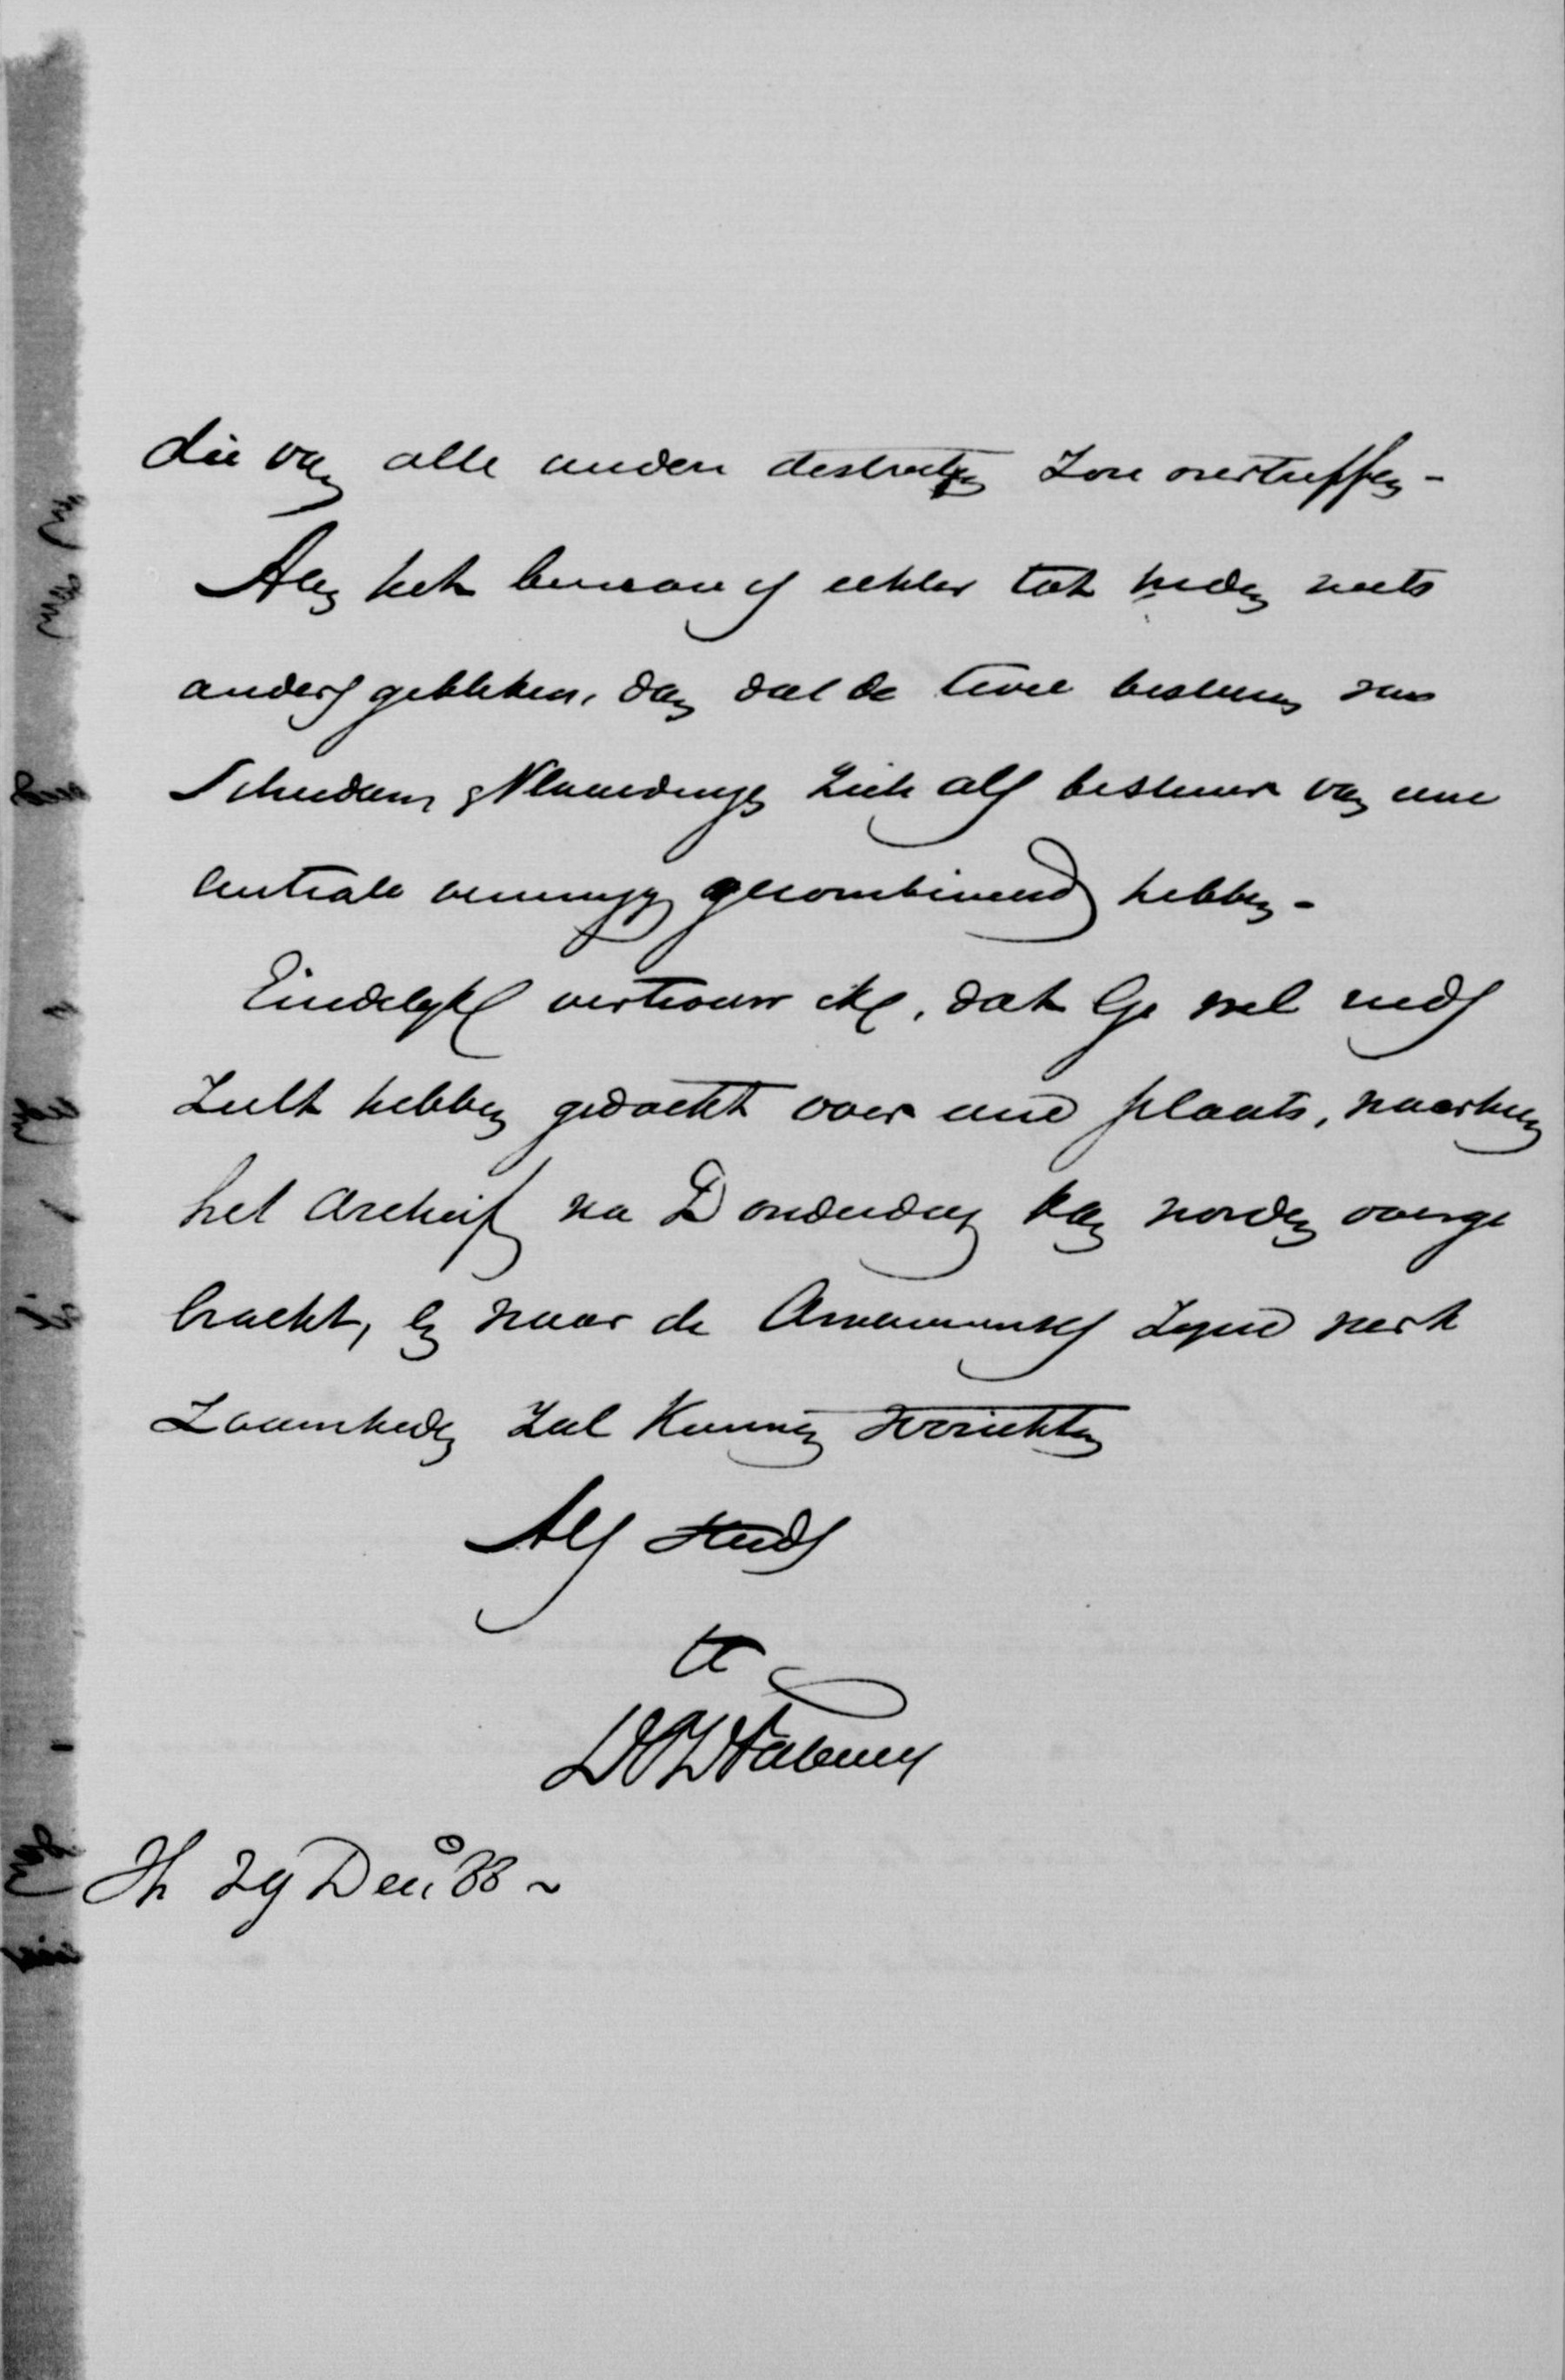 die van alle andere districten zou overtreffen -
Aan het bureau is echter tot heden niets
anders gebleken, dan dat de twee besturen van
Schiedam & Vlaardingen zich als bestuur van eene
centrale vereeniging gecombineerd hebben -
Eindelijk vertrouw ik, dat Ge wel reeds
zult hebben gedacht over eene plaats, waarheen
het Archief na Donderdag kan worden overge
bracht, en waar de Amanuensis zijne werk
zaamheden zal kunnen verrichten
Als steeds
tt
H 29 Dec 88 ~